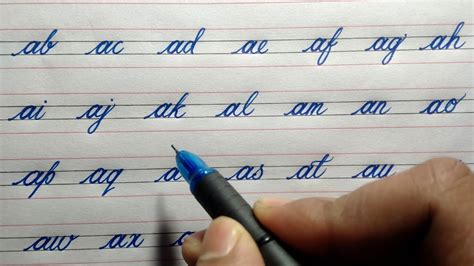 ab ac ad ae af ag ah
ai aj ak al am an ao
ap aq as at au
aw ax